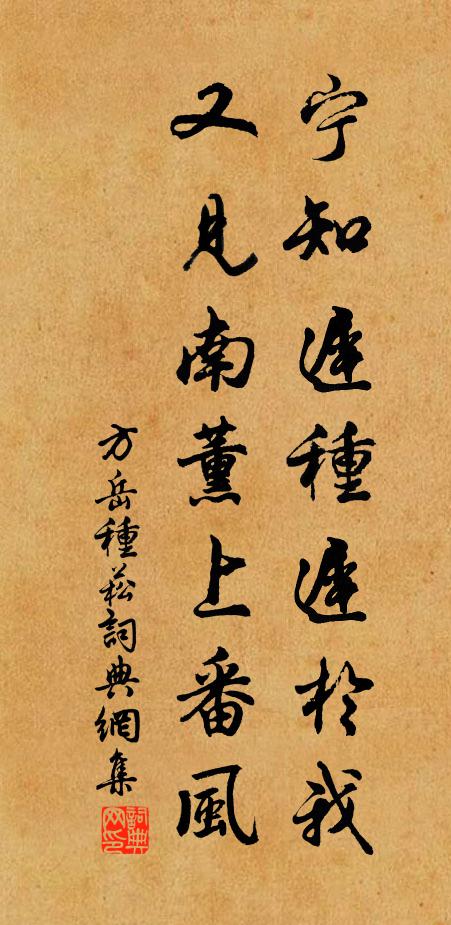 宁知遲種遲於我
又見南薰上番風
方岳種菘詞典網集
詞典網印